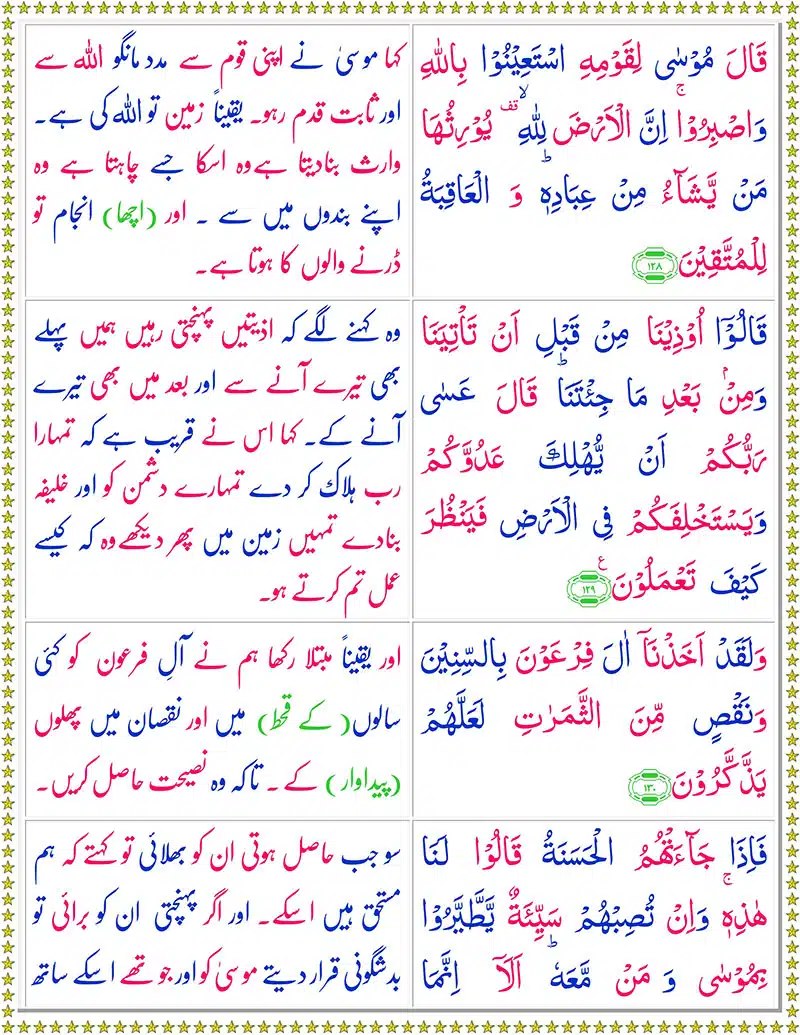 قَالَ مُوْسٰى لِقَوْمِهِ اسْتَعِيْنُوْا بِاللّٰهِ
وَاصْبِرُوْا ۚ اِنَّ الْاَرْضَ لِلّٰهِ ۙ قف يُوْرِثُهَا
مَنْ يَّشَآءُ مِنْ عِبَادِهٖ ؕ وَ الْعَاقِبَةُ
لِلْمُتَّقِيْنَ ۱۲۸
کہا موسیٰ نے اپنی قوم سے مدد مانگو اللہ سے
اور ثابت قدم رہو۔ یقیناً زمین تو اللہ کی ہے۔
وارث بنادیتا ہے وہ اسکا جسے چاہتا ہے وہ
اپنے بندوں میں سے ۔ اور (اچھا) انجام تو
ڈرنے والوں کا ہوتا ہے۔
قَالُوْۤا اُوْذِيْنَا مِنْ قَبْلِ اَنْ تَاْتِيَنَا
وَمِنْۢ بَعْدِ مَا جِئْتَنَا ؕ قَالَ عَسٰى
رَبُّكُمْ اَنْ يُّهْلِكَ عَدُوَّكُمْ
وَيَسْتَخْلِفَكُمْ فِى الْاَرْضِ فَيَنْظُرَ
كَيْفَ تَعْمَلُوْنَ ع ۱۲۹
وہ کہنے لگے کہ اذیتیں پہنچتی رہیں ہمیں پہلے
بھی تیرے آنے سے اور بعد میں بھی تیرے
آنے کے۔ کہا اس نے قریب ہے کہ تمہارا
رب ہلاک کر دے تمہارے دشمن کو اور خلیفہ
بنادے تمہیں زمین میں پھر دیکھے وہ کہ کیسے
عمل تم کرتے ہو۔
وَلَقَدْ اَخَذْنَاۤ اٰلَ فِرْعَوْنَ بِالسِّنِيْنَ
وَنَقْصٍ مِّنَ الثَّمَرٰتِ لَعَلَّهُمْ
يَذَّكَّرُوْنَ ۱۳۰
اور یقیناً مبتلا رکھا ہم نے آلِ فرعون کو کئی
سالوں (کے قحط) میں اور نقصان میں پھلوں
(پیداوار) کے ۔ تاکہ وہ نصیحت حاصل کریں۔
فَاِذَا جَآءَتْهُمُ الْحَسَنَةُ قَالُوْا لَنَا
هٰذِهٖ ۚ وَاِنْ تُصِبْهُمْ سَيِّئَةٌ يَّطَّيَّرُوْا
بِمُوْسٰى وَ مَنْ مَّعَهٗ ؕ اَلَاۤ اِنَّمَا
سو جب حاصل ہوتی ان کو بھلائی تو کہتے کہ ہم
مستحق ہیں اسکے۔ اور اگر پہنچتی ان کو برائی تو
بدشگونی قرار دیتے موسیٰ کو اور جو تھے اسکے ساتھ